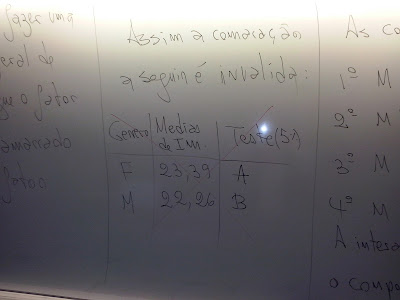 fazer uma
eral de
que o fator
amarrado
fator
Assim a comaração
a seguir é invalida:
Genero Medias de IM. Teste (5%)
F 23,39 A
M 22,26 B
As co
1º M
2º M
3º M
4º M
A intera
o compo